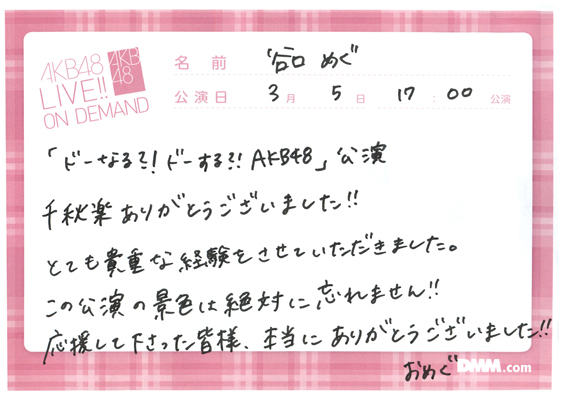 AKB48
LIVE!!
ON DEMAND
AKB
48
名前 谷口 めぐ
公演日 3月 5日 17:00 公演
「ドーなる?!ドーする?! AKB48」公演
千秋楽ありがとうございました!!
とても貴重な経験をさせていただきました。
この公演の景色は絶対に忘れません!!
応援して下さった皆様、本当にありがとうございました!!
おめぐ
DMM.com